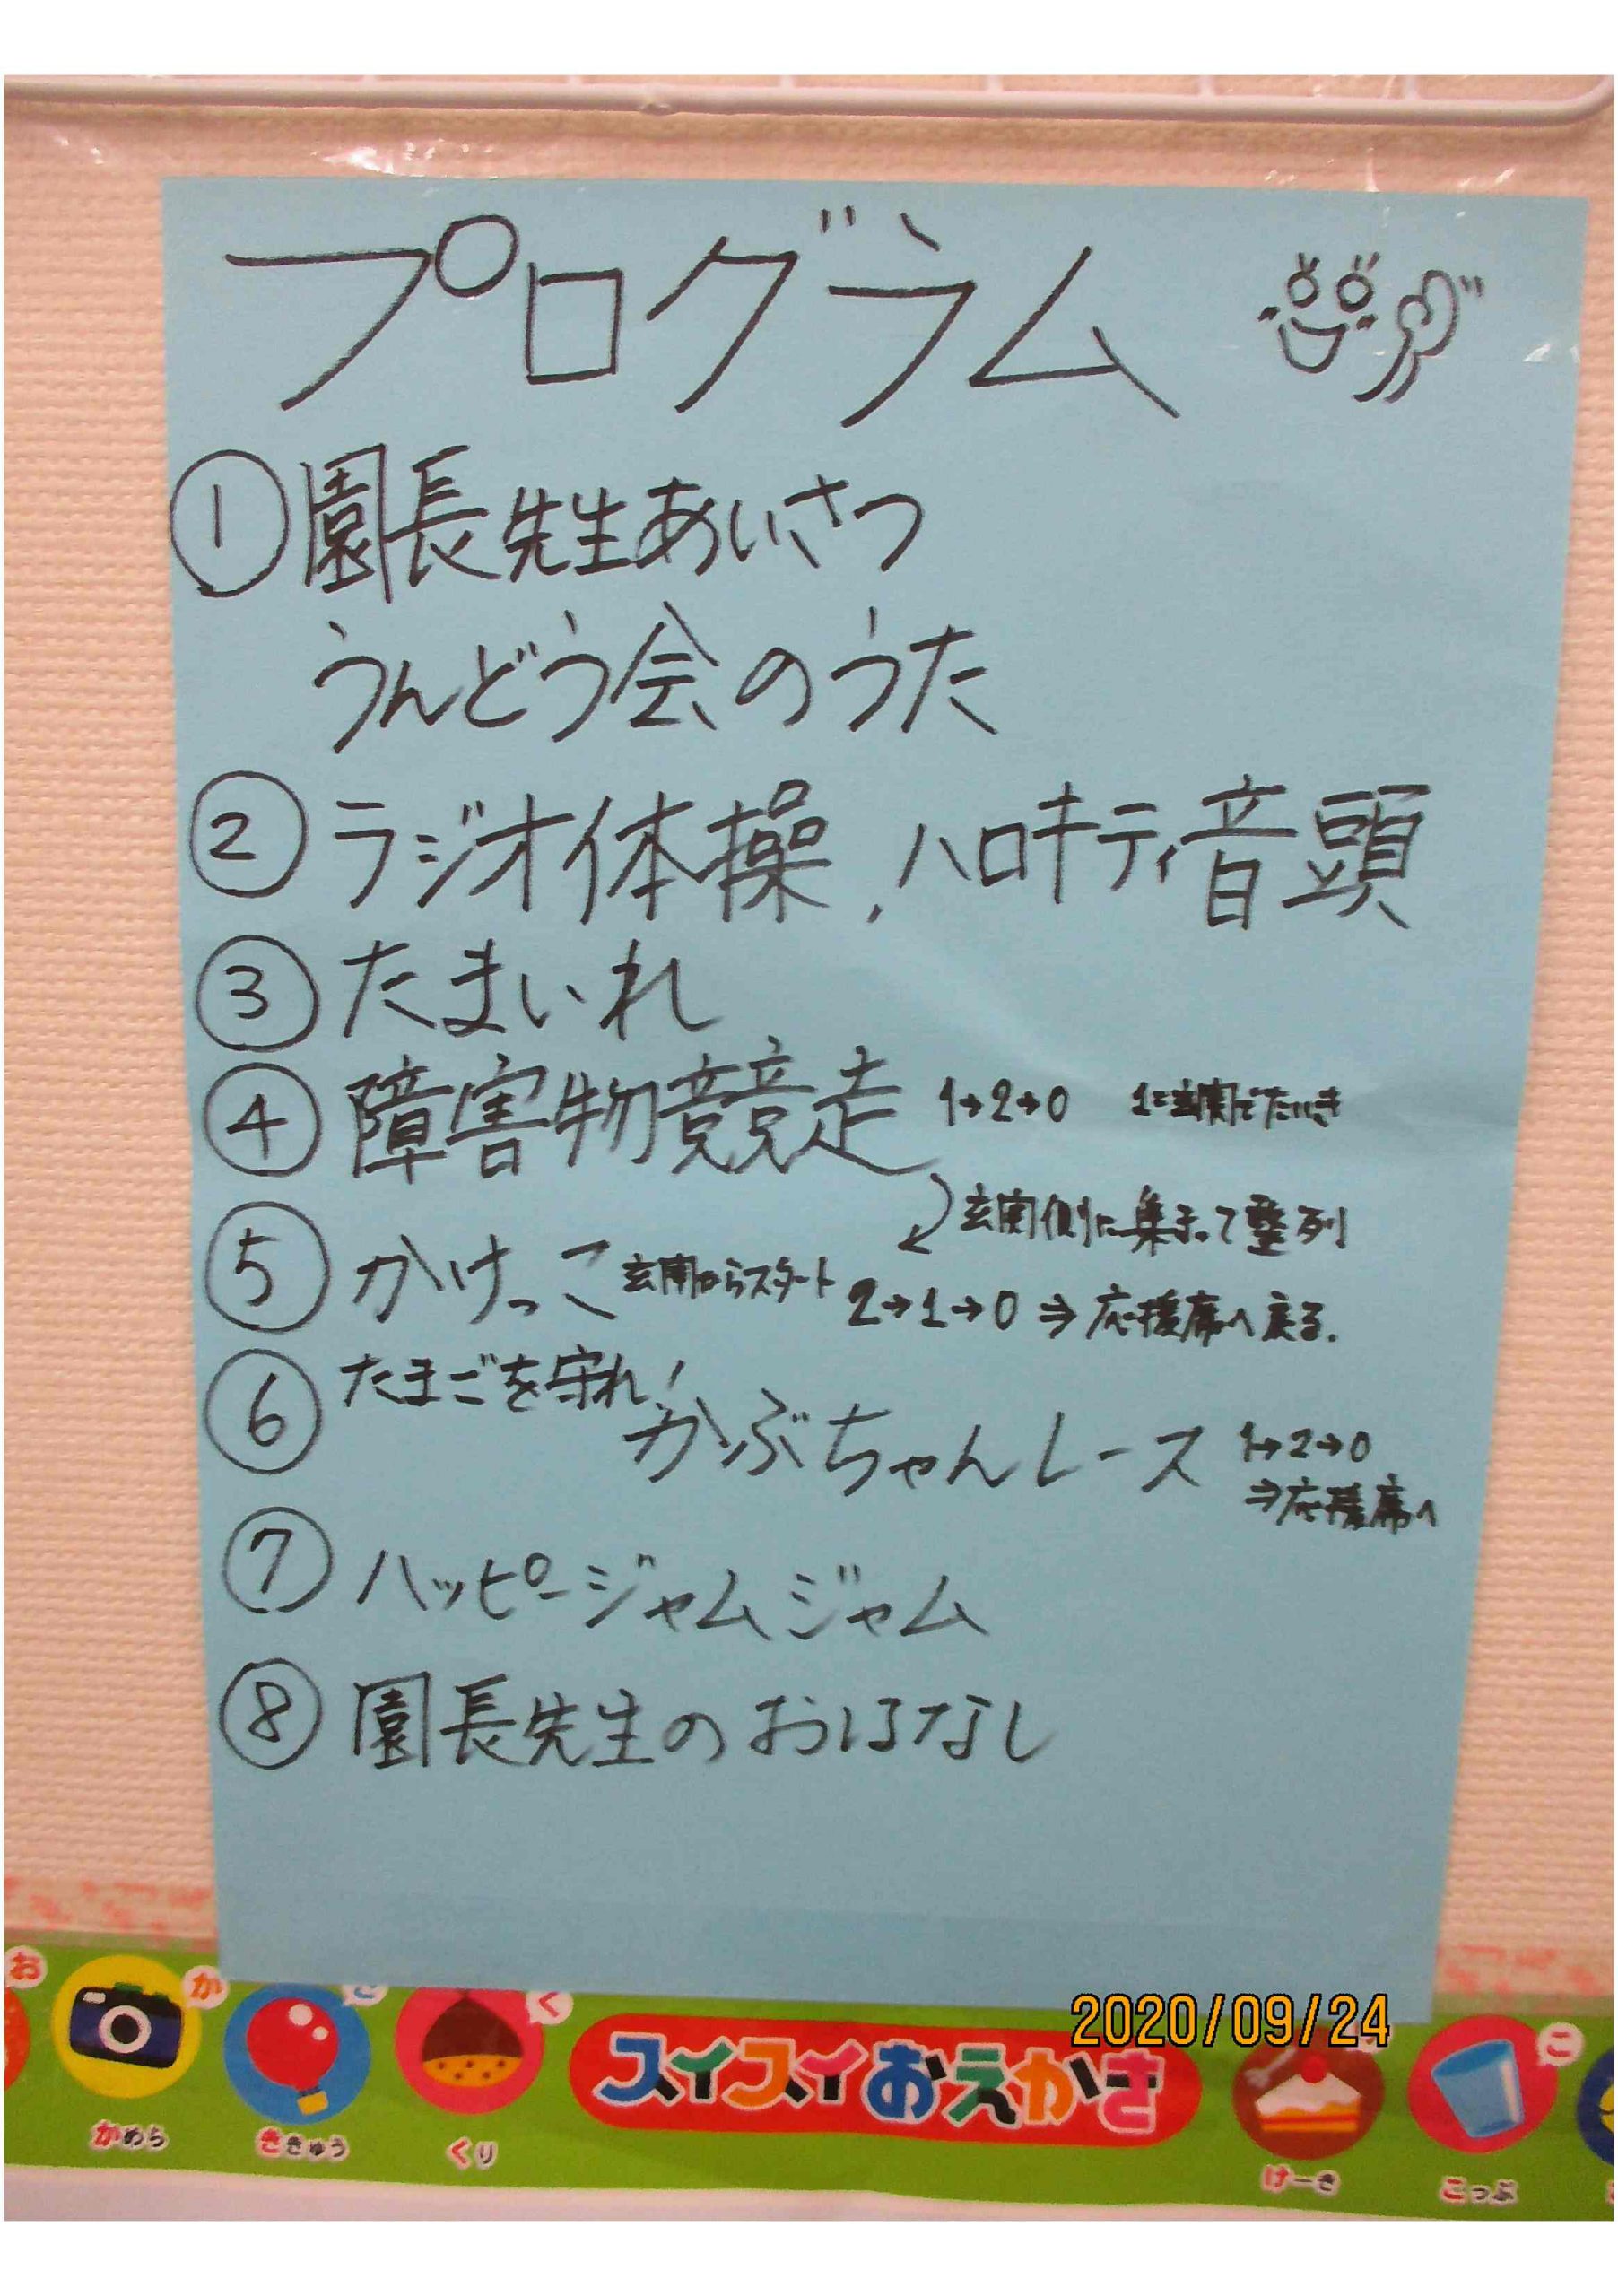 プログラム
①園長先生あいさつ
うんどう会のうた
②ラジオ体操、ハローキティ音頭
③たまいれ
④障害物競走 1→2→0 1は玄関でたいき
玄関側に集まって整列
⑤かけっこ 玄関からスタート 2→1→0⇒応援席へ戻る.
⑥たまごを守れ!
かぶちゃんレース 1→2→0
⇒応援席へ
⑦ハッピージャムジャム
⑧園長先生のおはなし
2020/09/24
お か き く こ
スイスイおえかき
かめら ききゅう くり けーき こっぷ